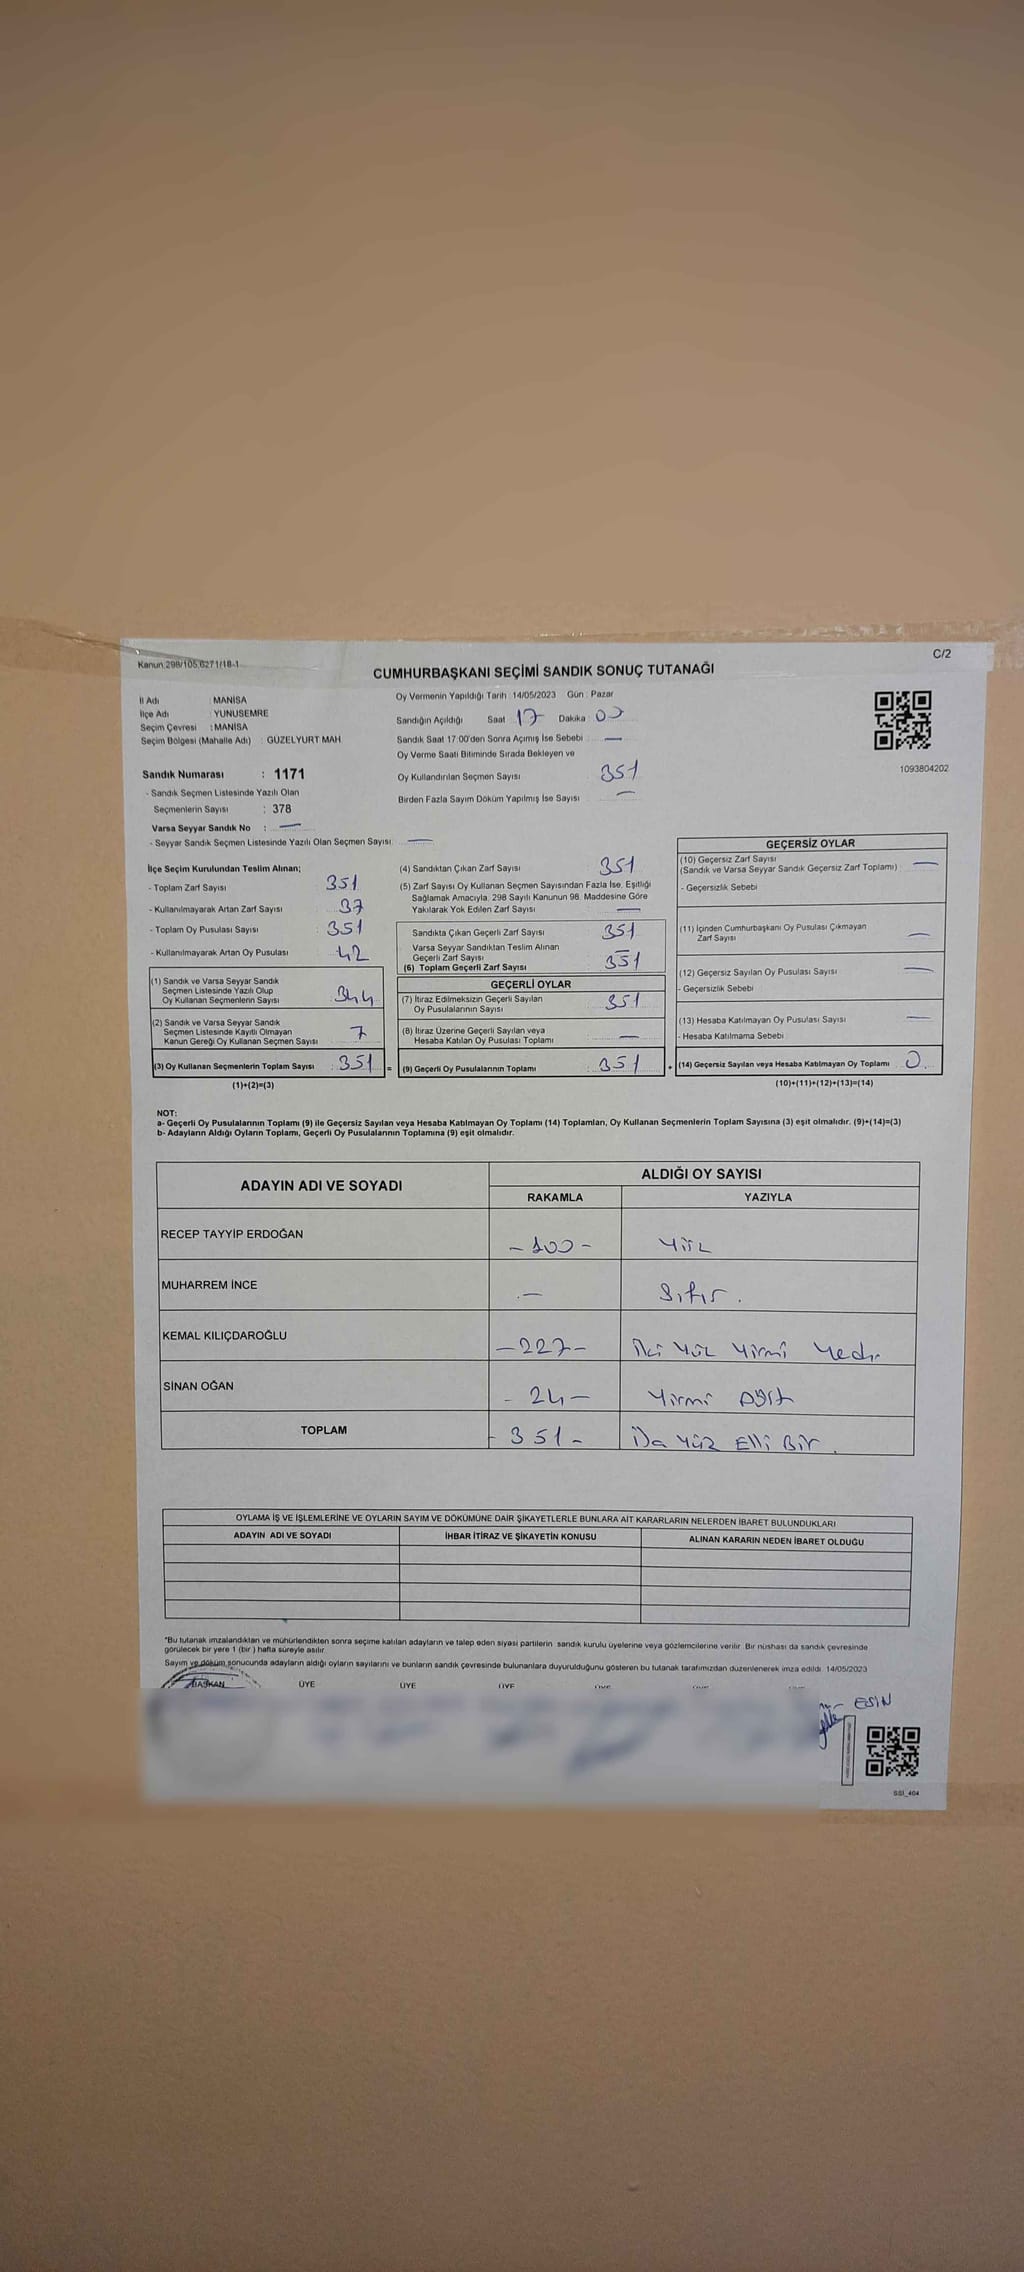 Kanun:298/105,6271/18-1
C/2
CUMHURBAŞKANI SEÇİMİ SANDIK SONUÇ TUTANAĞI
İl Adı MANİSA
İlçe Adı : YUNUSEMRE
Seçim Çevresi : MANİSA
Seçim Bölgesi (Mahalle Adı) : GÜZELYURT MAH
Sandık Numarası : 1171
- Sandık Seçmen Listesinde Yazılı Olan
Seçmenlerin Sayısı : 378
Varsa Seyyar Sandık No : —
- Seyyar Sandık Seçmen Listesinde Yazılı Olan Seçmen Sayısı: —
Oy Vermenin Yapıldığı Tarih 14/05/2023 Gün : Pazar
Sandığın Açıldığı Saat 17 Dakika 00
Sandık Saat 17:00'den Sonra Açımış İse Sebebi —
Oy Verme Saati Bitiminde Sırada Bekleyen ve
Oy Kullandırılan Seçmen Sayısı 351
Birden Fazla Sayım Döküm Yapılmış İse Sayısı —
1093804202
İlçe Seçim Kurulundan Teslim Alınan;
- Toplam Zarf Sayısı 351
- Kullanılmayarak Artan Zarf Sayısı 37
- Toplam Oy Pusulası Sayısı 351
- Kullanılmayarak Artan Oy Pusulası 42
(1) Sandık ve Varsa Seyyar Sandık
Seçmen Listesinde Yazılı Olup
Oy Kullanan Seçmenlerin Sayısı 344
(2) Sandık ve Varsa Seyyar Sandık
Seçmen Listesinde Kayıtlı Olmayan
Kanun Gereği Oy Kullanan Seçmen Sayısı 7
(3) Oy Kullanan Seçmenlerin Toplam Sayısı 351 =
(1)+(2)=(3)
(4) Sandıktan Çıkan Zarf Sayısı 351
(5) Zarf Sayısı Oy Kullanan Seçmen Sayısından Fazla İse, Eşitliği
Sağlamak Amacıyla, 298 Sayılı Kanunun 98. Maddesine Göre
Yakılarak Yok Edilen Zarf Sayısı —
Sandıkta Çıkan Geçerli Zarf Sayısı 351
Varsa Seyyar Sandıktan Teslim Alınan
Geçerli Zarf Sayısı
(6) Toplam Geçerli Zarf Sayısı 351
GEÇERLİ OYLAR
(7) İtiraz Edilmeksizin Geçerli Sayılan
Oy Pusulalarının Sayısı 351
(8) İtiraz Üzerine Geçerli Sayılan veya
Hesaba Katılan Oy Pusulası Toplamı —
(9) Geçerli Oy Pusulalarının Toplamı 351 +
GEÇERSİZ OYLAR
(10) Geçersiz Zarf Sayısı
(Sandık ve Varsa Seyyar Sandık Geçersiz Zarf Toplamı) —
- Geçersizlik Sebebi
(11) İçinden Cumhurbaşkanı Oy Pusulası Çıkmayan
Zarf Sayısı —
(12) Geçersiz Sayılan Oy Pusulası Sayısı —
- Geçersizlik Sebebi
(13) Hesaba Katılmayan Oy Pusulası Sayısı —
- Hesaba Katılmama Sebebi
(14) Geçersiz Sayılan veya Hesaba Katılmayan Oy Toplamı 0.
(10)+(11)+(12)+(13)=(14)
NOT:
a- Geçerli Oy Pusulalarının Toplamı (9) ile Geçersiz Sayılan veya Hesaba Katılmayan Oy Toplamı (14) Toplamları, Oy Kullanan Seçmenlerin Toplam Sayısına (3) eşit olmalıdır. (9)+(14)=(3)
b- Adayların Aldığı Oyların Toplamı, Geçerli Oy Pusulalarının Toplamına (9) eşit olmalıdır.
ADAYIN ADI VE SOYADI ALDIĞI OY SAYISI
RAKAMLA YAZIYLA
RECEP TAYYİP ERDOĞAN - 100 - Yüz
MUHARREM İNCE — Sıfır.
KEMAL KILIÇDAROĞLU - 227 - İki Yüz Yirmi Yedi
SİNAN OĞAN - 24 - Yirmi Dört
TOPLAM - 351 - Yüz Elli Bir.
OYLAMA İŞ VE İŞLEMLERİNE VE OYLARIN SAYIM VE DÖKÜMÜNE DAİR ŞİKAYETLERLE BUNLARA AİT KARARLARIN NELERDEN İBARET BULUNDUKLARI
ADAYIN ADI VE SOYADI İHBAR İTİRAZ VE ŞİKAYETİN KONUSU ALINAN KARARIN NEDEN İBARET OLDUĞU
"Bu tutanak imzalandıktan ve mühürlendikten sonra seçime katılan adayların ve talep eden siyasi partilerin sandık kurulu üyelerine veya gözlemcilerine verilir. Bir nüshası da sandık çevresinde
görülecek bir yere 1 (bir ) hafta süreyle asılır.
Sayım ve döküm sonucunda adayların aldığı oyların sayılarını ve bunların sandık çevresinde bulunanlara duyurulduğunu gösteren bu tutanak tarafımızdan düzenlenerek imza edildi. 14/05/2023
BAŞKAN ÜYE ÜYE ÜYE
ESİN
SSI_404